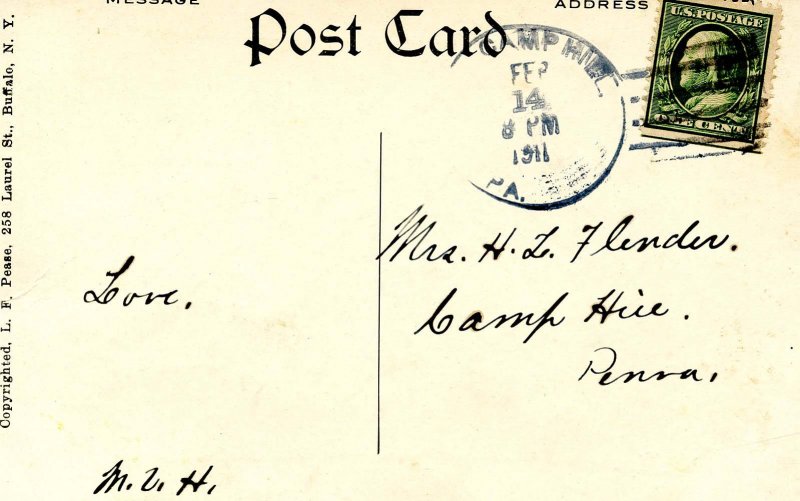 MESSAGE
ADDRESS
Post Card
CAMP HILL,
FEB
14
8 PM
1911
PA.
U.S. POSTAGE
Copyrighted, L. F. Pease, 258 Laurel St., Buffalo, N. Y.
Love.
M. V. H.
Mrs. H. L. Flender.
Camp Hill.
Penna.